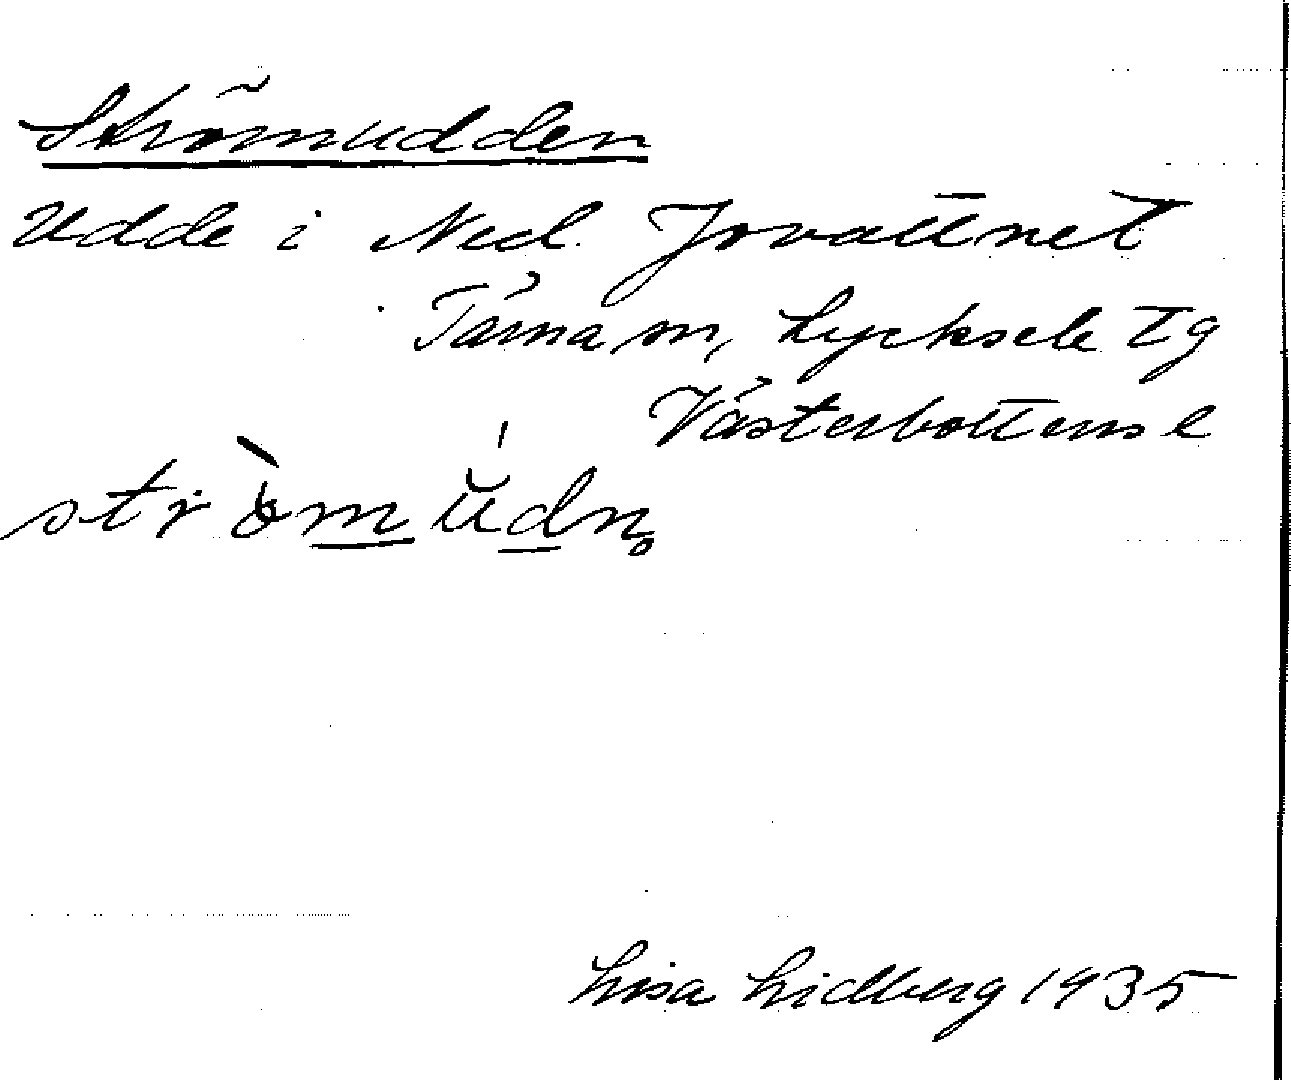 Strömudden
Udde i Ned. Jovattnet
Tärna sn, Lycksele tg
Västerbottens l
strö̀mu̍dn̥
Lisa Lidberg 1935